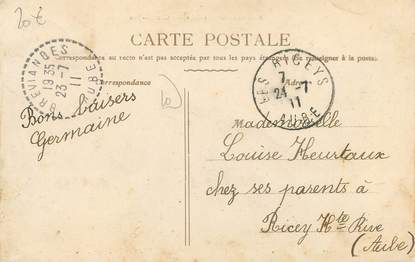 20 €
CARTE POSTALE
Correspondance au recto n'est pas acceptée par tous les pays étrangers (se renseigner à la poste).
Correspondance
BREVIANDES
19 35
23 - 7
11
AUBE
LES RICEYS
7
24 - 7
11
AUBE
Bons baisers
Germaine
Mademoiselle
Louise Heurtaux
chez ses parents à
Ricey Hte Rive
(Aube)